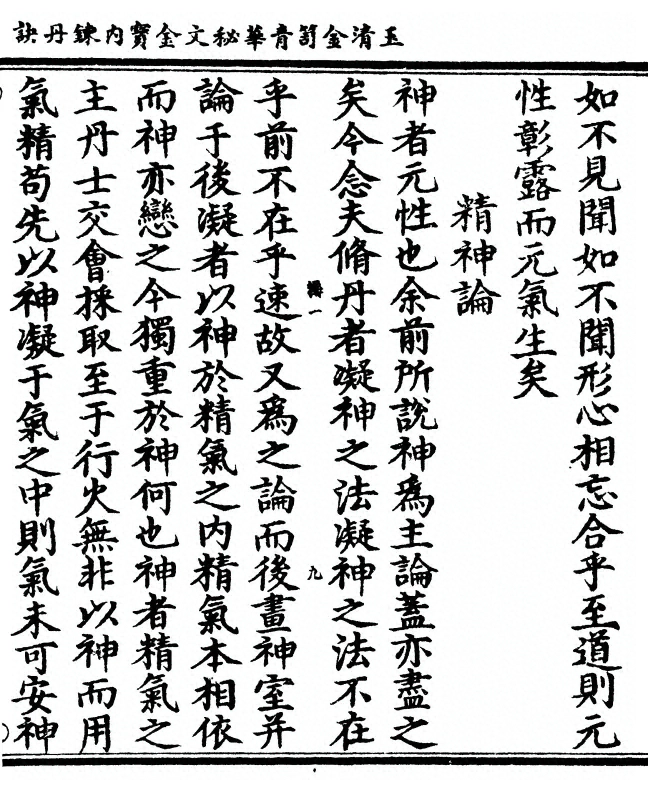 玉清金笥青華秘文金寶内鍊丹訣
如不見聞如不聞形心相忘合乎至道則元
性彰露而元氣生矣
精神論
神者元性也余前所說神為主論蓋亦盡之
矣今念夫脩丹者凝神之法凝神之法不在
九
乎前不在乎速故又為之論而後畫神室并
論于後凝者以神於精氣之内精氣本相依
而神亦戀之今獨重於神何也神者精氣之
主丹士交會採取至于行火無非以神而用
氣精苟先以神凝于氣之中則氣未可安神